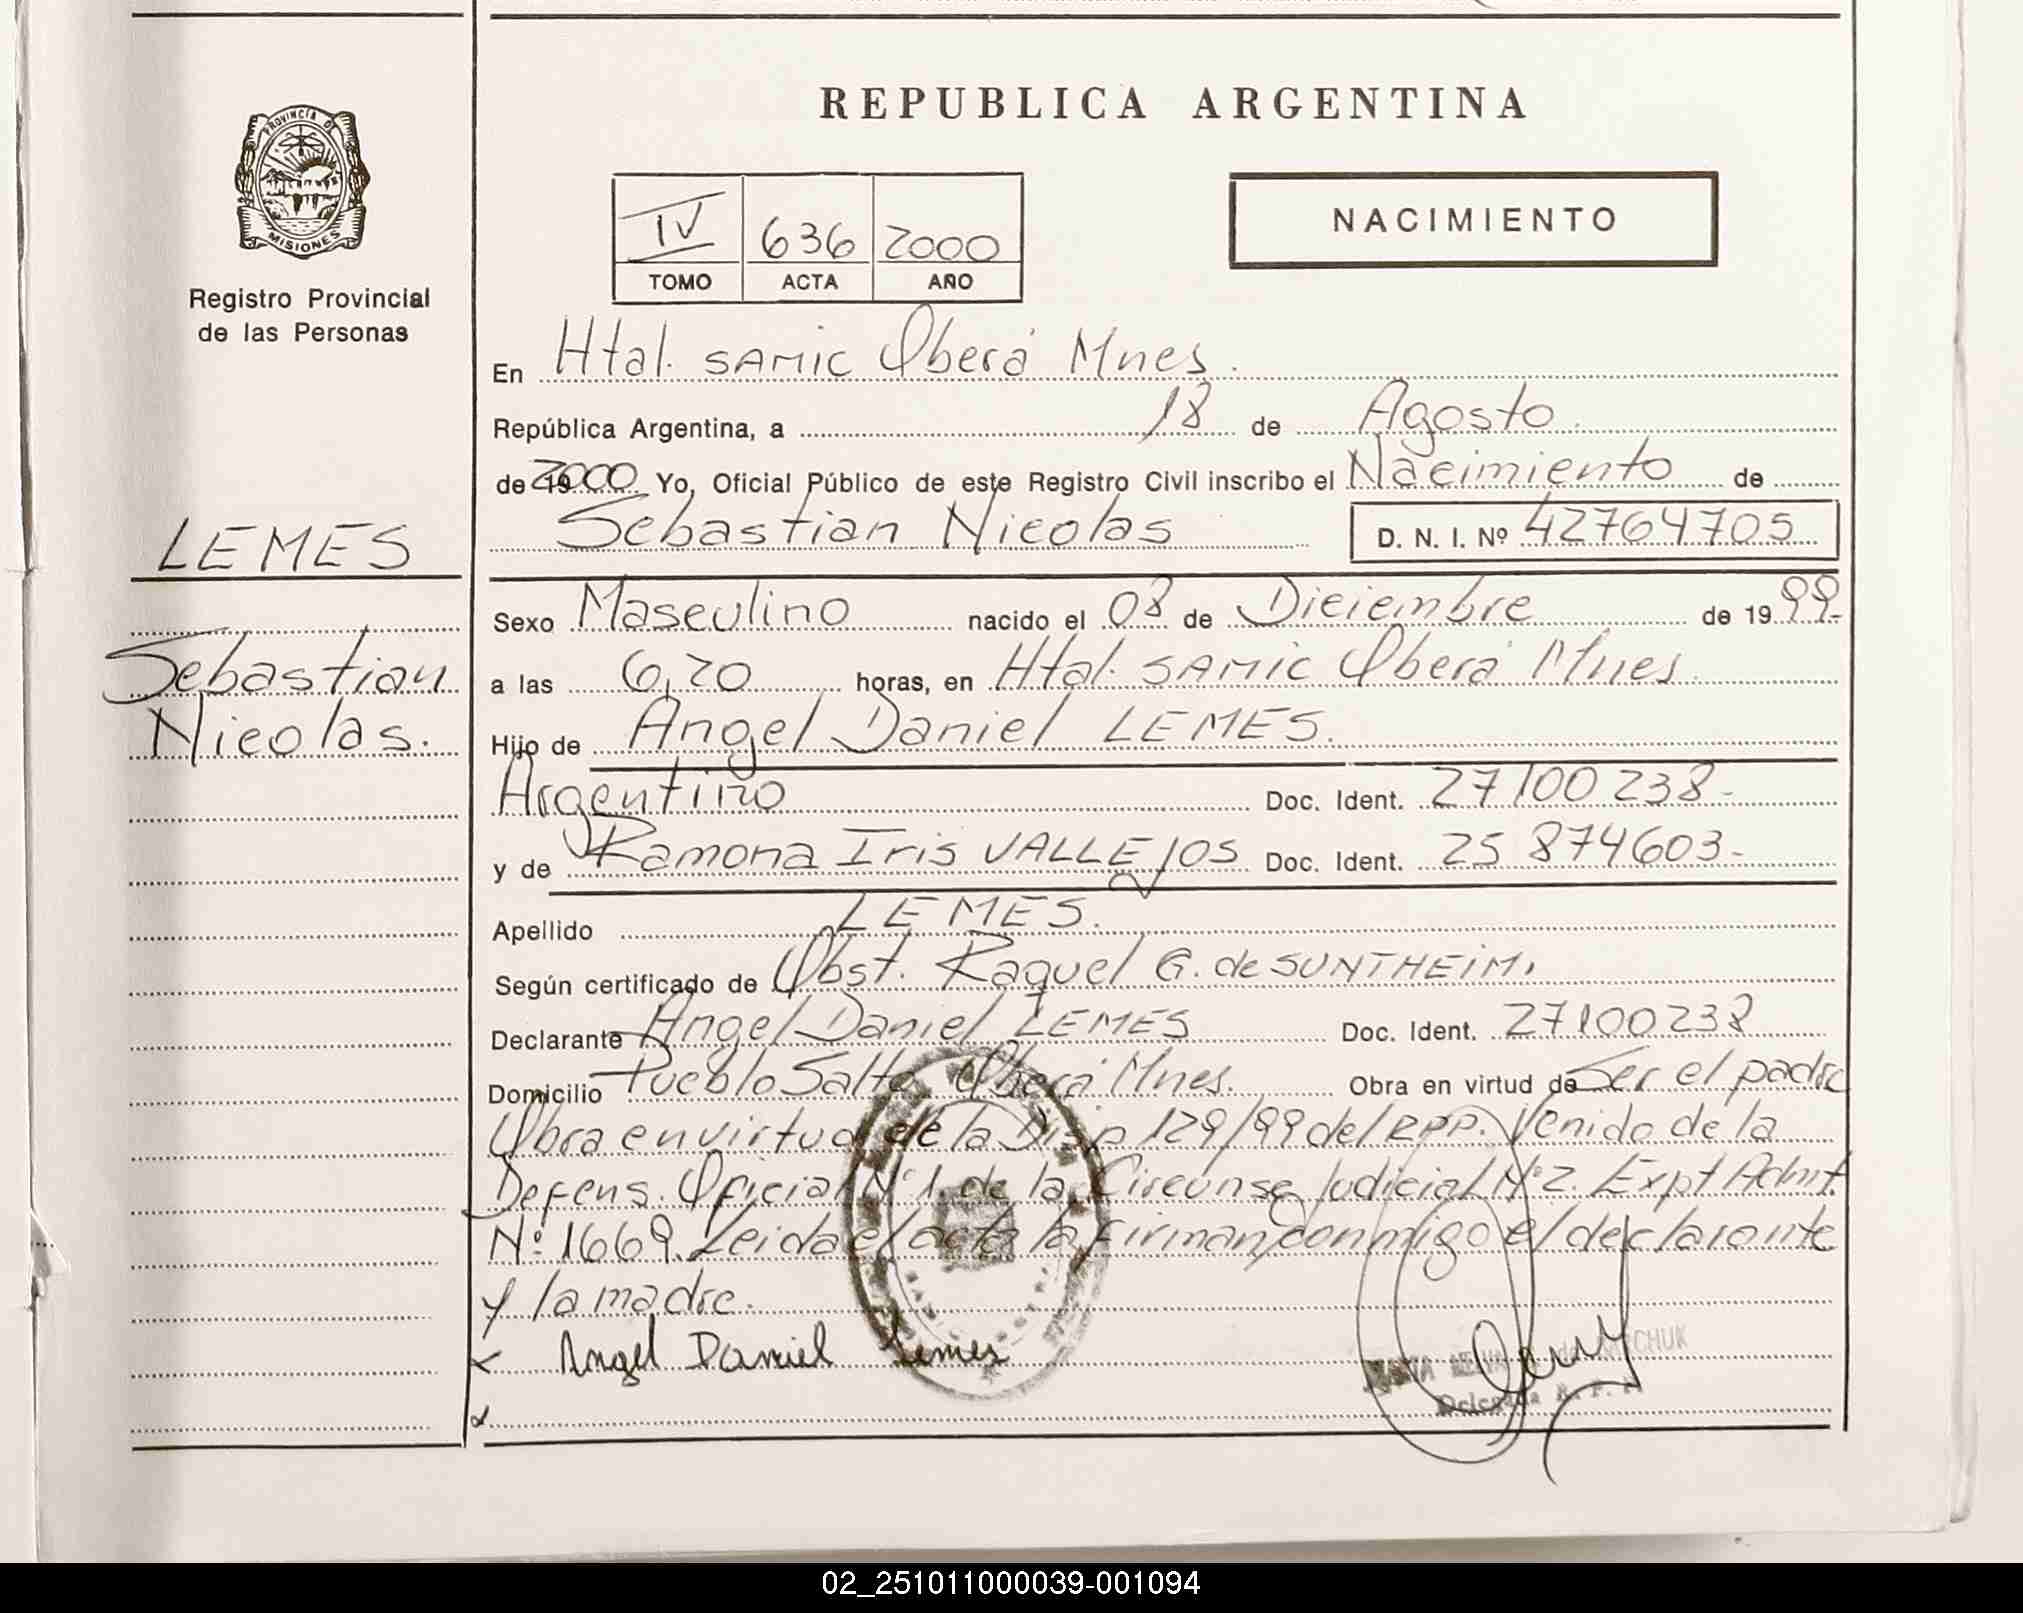 REPUBLICA ARGENTINA
PROVINCIA DE
MISIONES
Registro Provincial
de las Personas
IV 636 2000
TOMO ACTA AÑO
NACIMIENTO
LEMES
Sebastian
Nicolas.
En Htal. SAMIC Oberá Mnes.
República Argentina, a 18 de Agosto.
de 2000 Yo, Oficial Público de este Registro Civil inscribo el Nacimiento de
Sebastian Nicolas D. N. I. Nº 42764705
Sexo Masculino nacido el 08 de Diciembre de 1999.-
a las 6,20 horas, en Htal. SAMIC Oberá Mnes.
Hijo de Angel Daniel LEMES.
Argentino Doc. Ident. 27100238-
y de Ramona Iris VALLEJOS Doc. Ident. 25 874603-
Apellido LEMES.
Según certificado de Obst. Raquel G. de SUNTHEIM.
Declarante Angel Daniel LEMES Doc. Ident. 27100238
Domicilio Pueblo Salto Oberá Mnes. Obra en virtud de Ser el padre
Obra en virtud de la Disp 129/99 del RPP. Venido de la
Defens. Oficial Nº1. de la Circunsc Judicial Nº2. Expt Admt.
Nº 1669. Leida el acta la firman conmigo el declarante
y la madre.
Angel Daniel Lemes
CHUK
Delegada R. P. P.
02_251011000039-001094